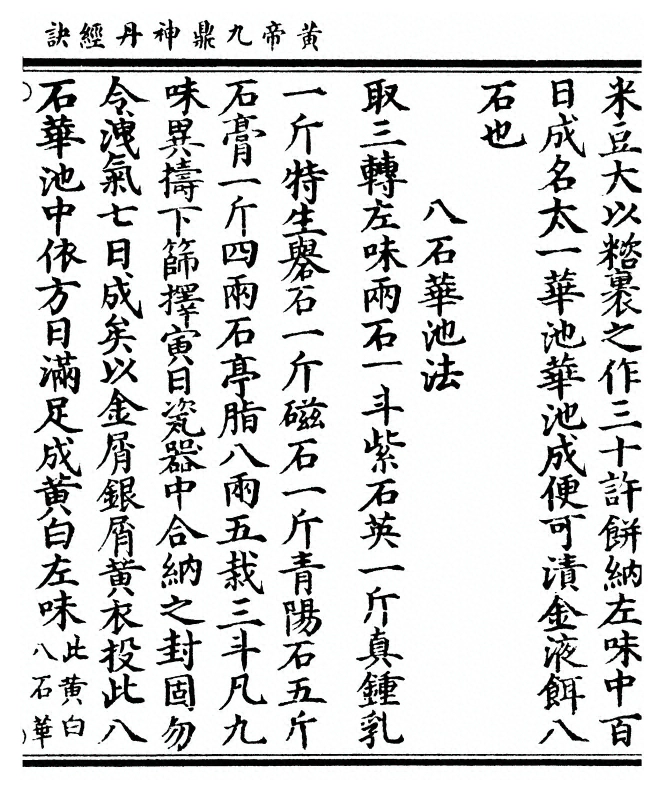 黃帝九鼎神丹經訣
米豆大以糌裹之作三十許餅納左味中百
日成名太一華池華池成便可漬金液餌八
石也
八石華池法
取三轉左味兩石一斗紫石英一斤真鍾乳
一斤特生礜石一斤磁石一斤青陽石五斤
石膏一斤四兩石亭脂八兩五栽三斗凡九
味異擣下篩擇寅日瓷器中合納之封固勿
令洩氣七日成矣以金屑銀屑黃衣投此八
石華池中依方日滿足成黃白左味此黃白
八石華